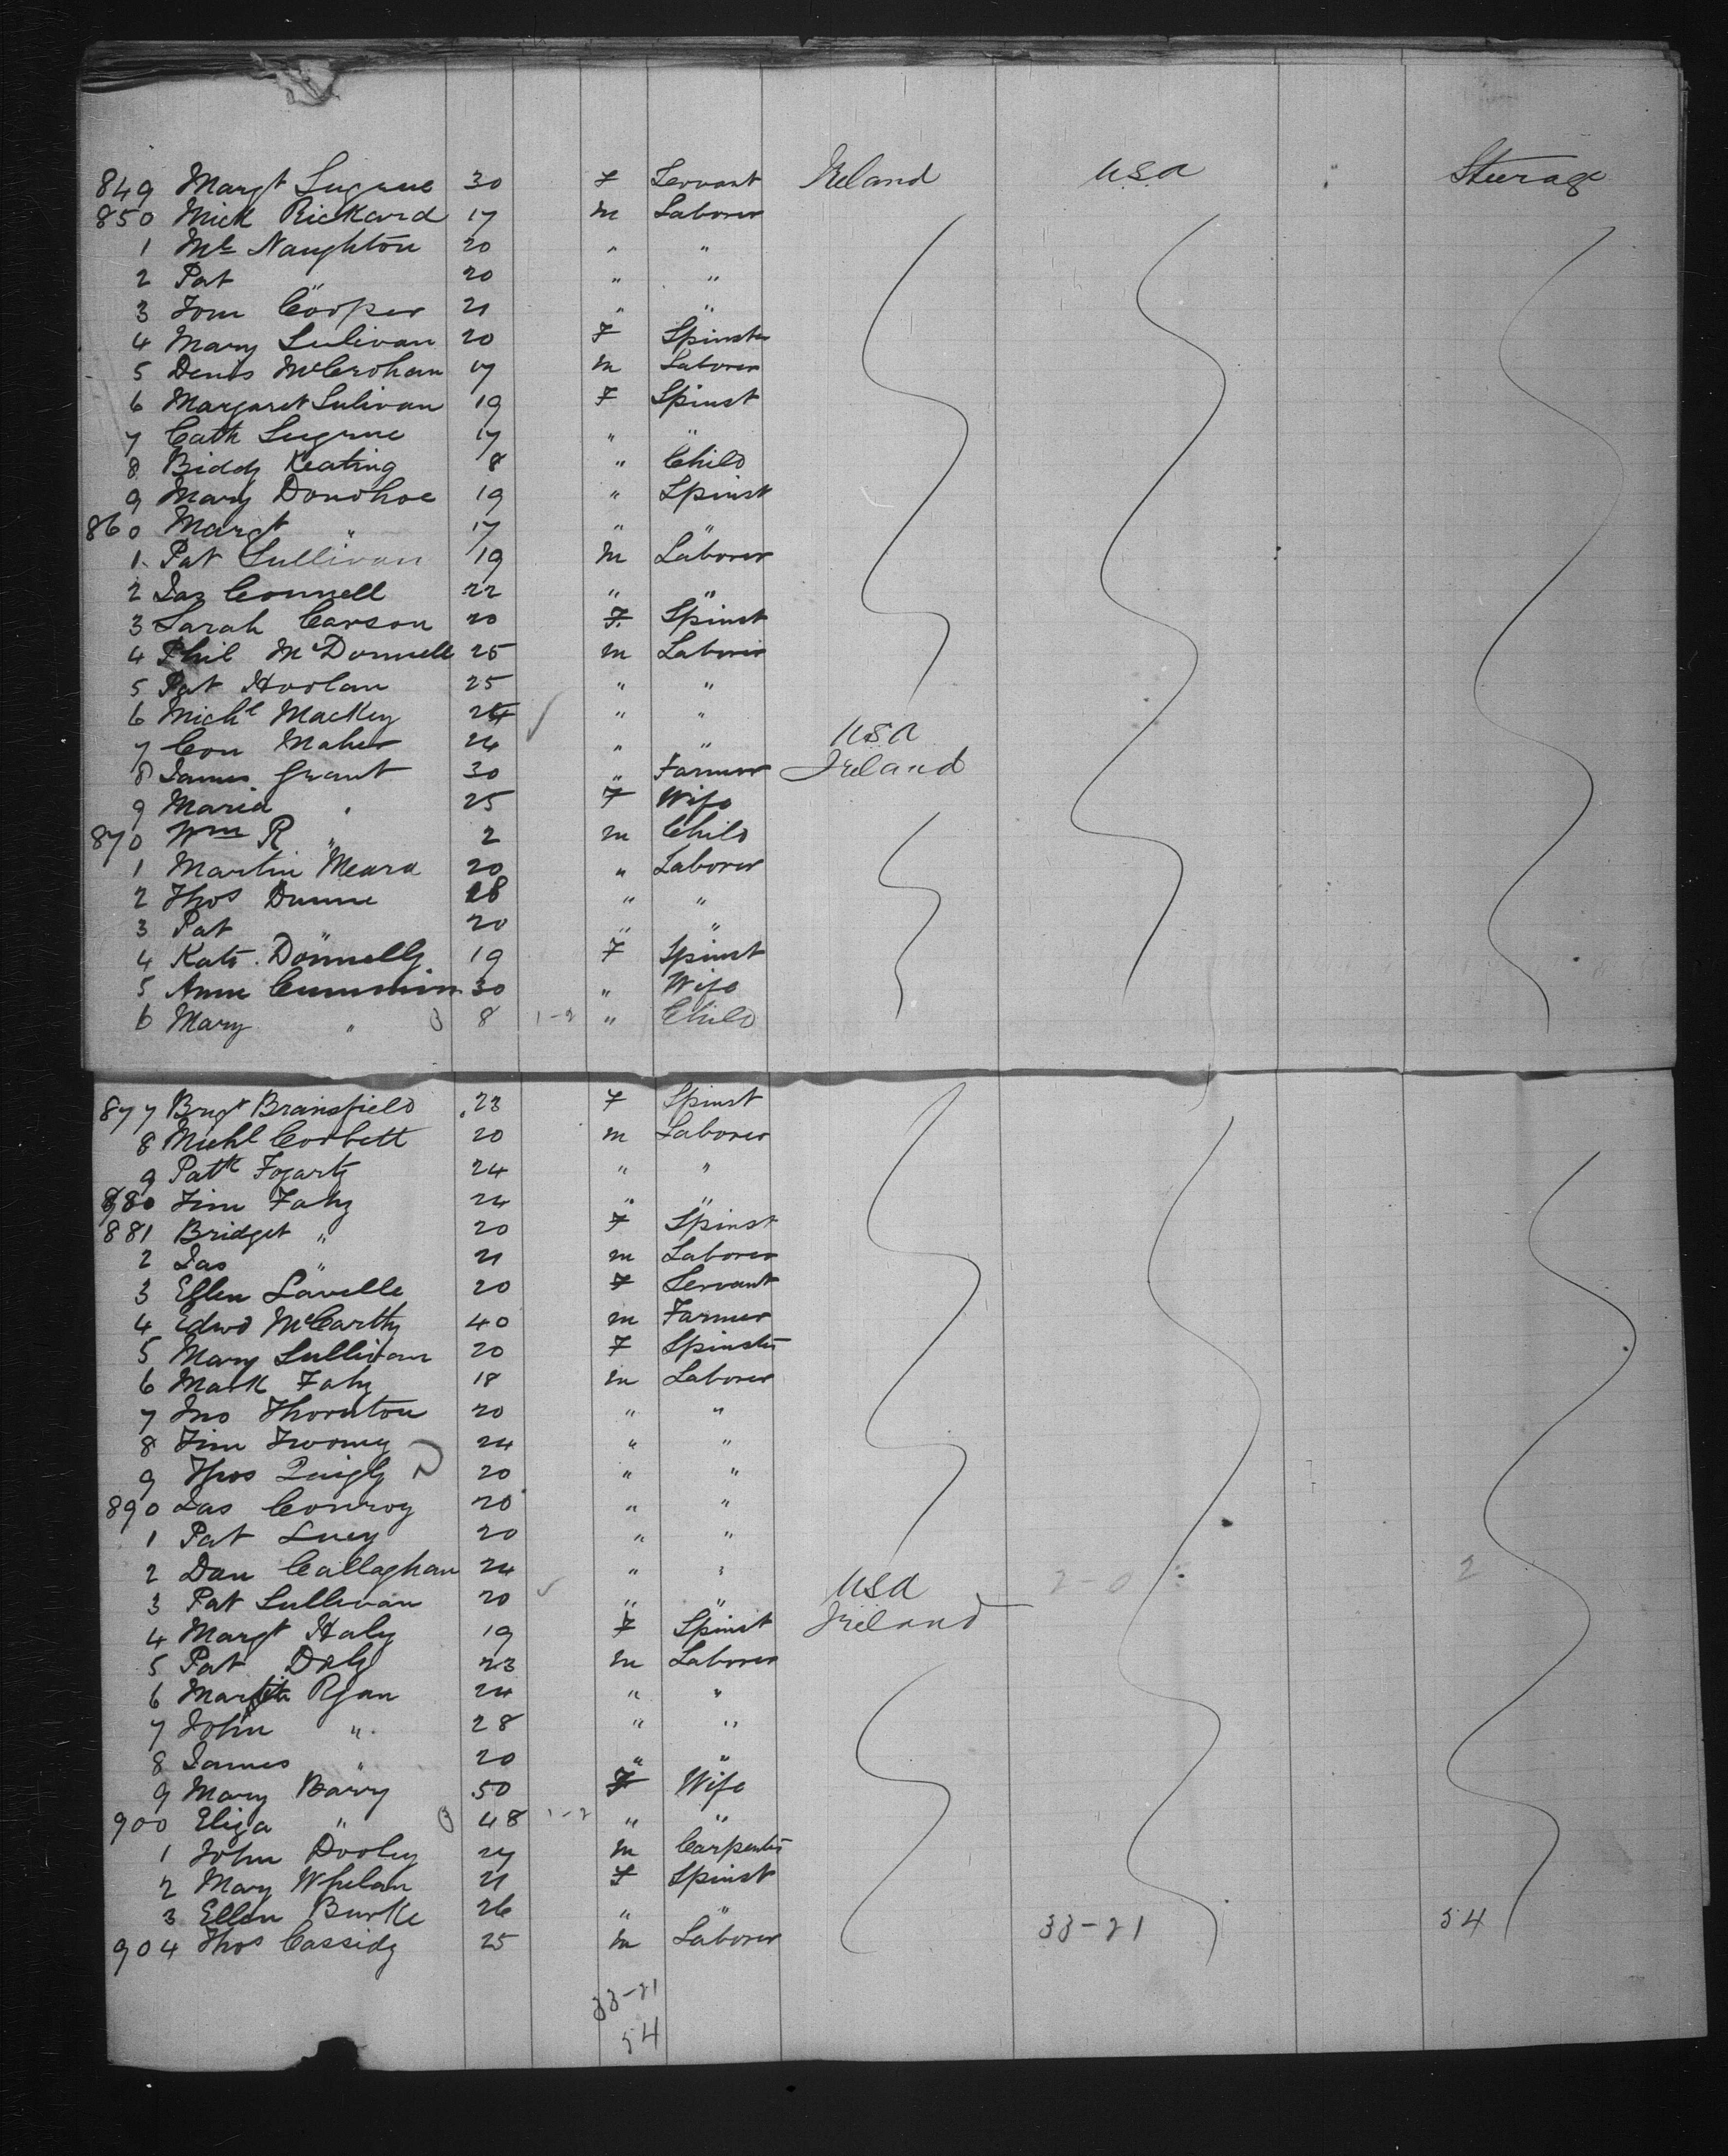 849 Margt Sugrue 30 F Servant Ireland USA Steerage
850 Mick Rickard 17 M Laborer
1 Mc Naughton 20 " "
2 Pat " 20 " "
3 Tom Cooper 21 " "
4 Mary Sulivan 20 F Spinster
5 Denis McCrohan 17 M Laborer
6 Margaret Sulivan 19 F Spinst
7 Cath Sugrue 17 " "
8 Biddy Keating 8 " Child
9 Mary Donohoe 19 " Spinst
860 Margt " 17 " "
1 Pat Sullivan 19 M Laborer
2 Jas Connell 22 " "
3 Sarah Carson 20 F. Spinst
4 Phil McDonnell 25 M Laborer
5 Pat Hoolan 25 " "
6 Michl Mackey 24 " "
7 Con Maher 24 " " USA
8 James Grant 30 " Farmer Ireland
9 Maria " 25 F Wife
870 Wm R " 2 M Child
1 Martin Meara 20 " Laborer
2 Thos Dunne 28 " "
3 Pat " 20 " "
4 Kate Donnelly 19 F Spinst
5 Anne Cummins 30 " Wife
6 Mary " 3 8 1-2 " Child
877 Brgt Bransfield 23 F Spinst
8 Michl Corbett 20 M Laborer
9 Patk Fogarty 24 " "
880 Tim Fahy 24 " "
881 Bridget " 20 F Spinst
2 Jas " 21 M Laborer
3 Ellen Lavelle 20 F Servant
4 Edwd McCarthy 40 M Farmer
5 Mary Sullivan 20 F Spinster
6 Mark Fahy 18 M Laborer
7 Jno Thornton 20 " "
8 Tim Twomey 24 " "
9 Thos Quigly 20 " "
890 Jas Conroy 20 " "
1 Pat Lucy 20 " "
2 Dan Callaghan 24 " "
3 Pat Sullivan 20 " " USA 2-0 2
4 Margt Haly 19 F Spinst Ireland
5 Pat Daly 23 M Laborer
6 Martin Ryan 24 " "
7 John " 28 " "
8 James " 20 " "
9 Mary Barry 50 F Wife
900 Eliza " 3 48 1-2 " "
1 John Dooley 27 M Carpenter
2 Mary Whelan 21 F Spinst
3 Ellen Burke 26 " " 33-21 54
904 Thos Cassidy 25 M Laborer
33-21
54